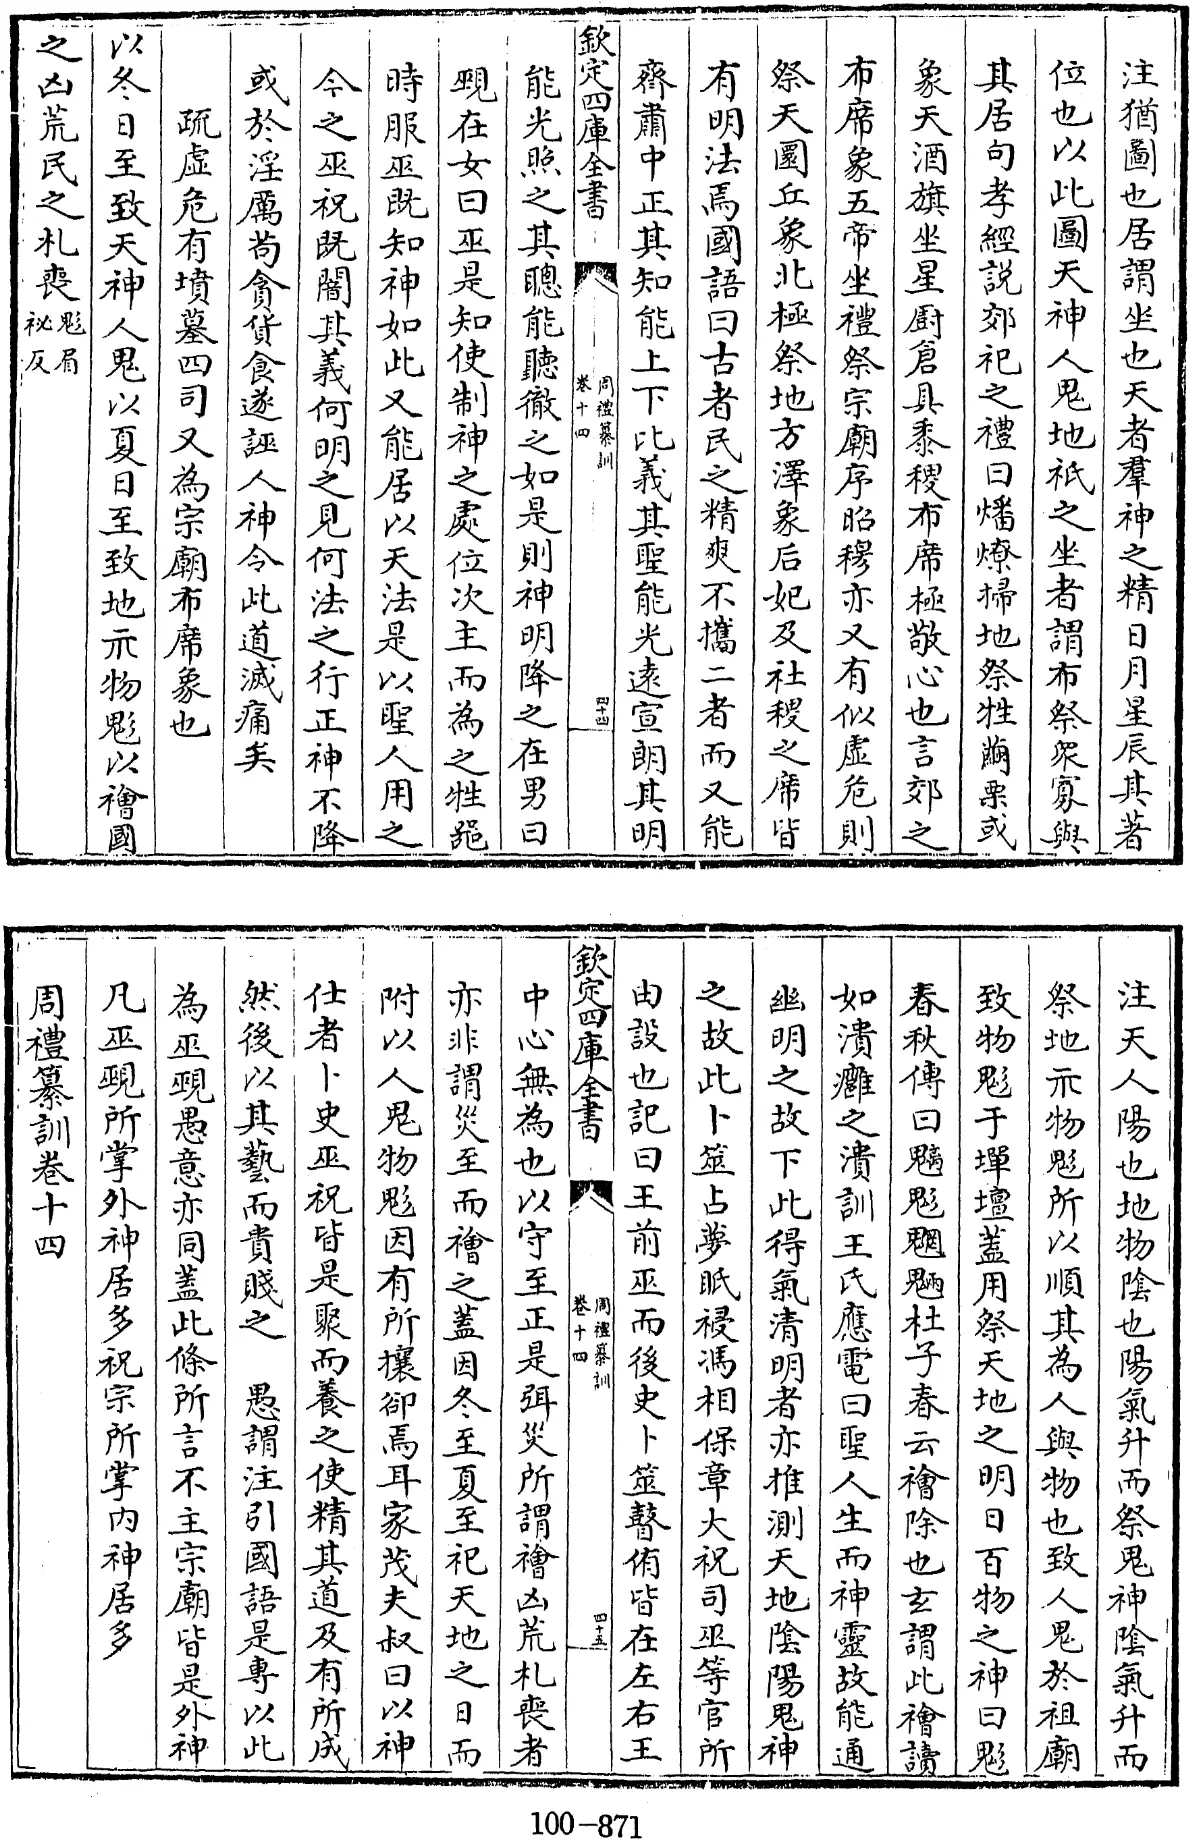 注猶圖也居謂坐也天者羣神之精日月星辰其著
位也以此圖天神人鬼地祇之坐者謂布祭衆寡與
其居句孝經説郊祀之禮曰燔燎掃地祭牲繭栗或
象天酒旗坐星厨倉具黍稷布席極敬心也言郊之
布席象五帝坐禮祭宗廟序昭穆亦又有似虚危則
祭天圜丘象北極祭地方澤象后妃及社稷之席皆
有明法焉國語曰古者民之精爽不攜二者而又能
齊肅中正其知能上下比義其聖能光遠宣朗其明
欽定四庫全書
周禮纂訓
卷十四
四十四
能光照之其聰能聽徹之如是則神明降之在男曰
覡在女曰巫是知使制神之處位次主而為之牲器
時服巫既知神如此又能居以天法是以聖人用之
今之巫祝既闇其義何明之見何法之行正神不降
或於淫厲茍貪貨食遂誣人神令此道滅痛矣
疏虚危有墳墓四司又為宗廟布席象也
以冬日至致天神人鬼以夏日至致地示物鬽以禬國
之凶荒民之札喪鬽眉
祕反
注天人陽也地物陰也陽氣升而祭鬼神陰氣升而
祭地示物鬽所以順其為人與物也致人鬼於祖廟
致物鬽于墠壇蓋用祭天地之明日百物之神曰鬽
春秋傳曰螭鬽魍魎杜子春云禬除也玄謂此禬讀
如潰癰之潰訓王氏應電曰聖人生而神靈故能通
幽明之故下此得氣清明者亦推測天地陰陽鬼神
之故此卜筮占夢眡祲馮相保章大祝司巫等官所
由設也記曰王前巫而後史卜筮瞽侑皆在左右王
欽定四庫全書
周禮纂訓
卷十四
四十五
中心無為也以守至正是弭災所謂禬凶荒札喪者
亦非謂災至而禬之蓋因冬至夏至祀天地之日而
附以人鬼物鬽因有所攘卻焉耳家茂夫叔曰以神
仕者卜史巫祝皆是聚而養之使精其道及有所成
然後以其藝而貴賤之 愚謂注引國語是專以此
為巫覡愚意亦同蓋此條所言不主宗廟皆是外神
凡巫覡所掌外神居多祝宗所掌内神居多
周禮纂訓卷十四
100-871